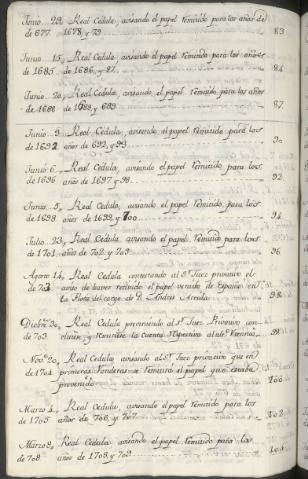 Junio 22, Real Cedula, avisando el papel remitido para los años de
de 677. 1678, y 79 83
Junio 15, Real Cedula, avisando el papel remitido para los años
de 1685 de 1686, y 87 84
Junio 20, Real Cedula, avisando el papel remitido, para los años
de 1688 de 1688, y 689 87
Junio 9, Real Cedula, avisando el papel remitido para los
de 1692 años de 692, y 93 90
Junio 6, Real Cedula, avisando el papel remitido para los
de 1696 años de 1697 y 98 92
Junio 5, Real Cedula, avisando el papel remitido, para los
de 1698 años de 1699, y 700 94
Julio 23, Real Cedula, avisando el papel remitido para los
de 1701 años de 702, y 703 96
Agosto 14, Real Cedula contestando al Sr. Juez privativo el
de 703 aviso de haver recibido el papel venido de España en
la Flota del cargo de D. Andres 98
Dicbre. 30, Real Cedula previniendo al Sr. Juez Privativo con
de 703 y remitiese la cuenta respectiva 99
Nove. 20, Real Cedula avisando al Sr. Juez privativo que en
de 1704 primeras se remitira el papel que estaba
prevenido 100
Marzo 4, Real Cedula, avisando el papel remitido para los
de 1705 años de 706, y 707 102
Marzo 2, Real Cedula avisando el papel remitido para los
de 708 años de 1708, y 709